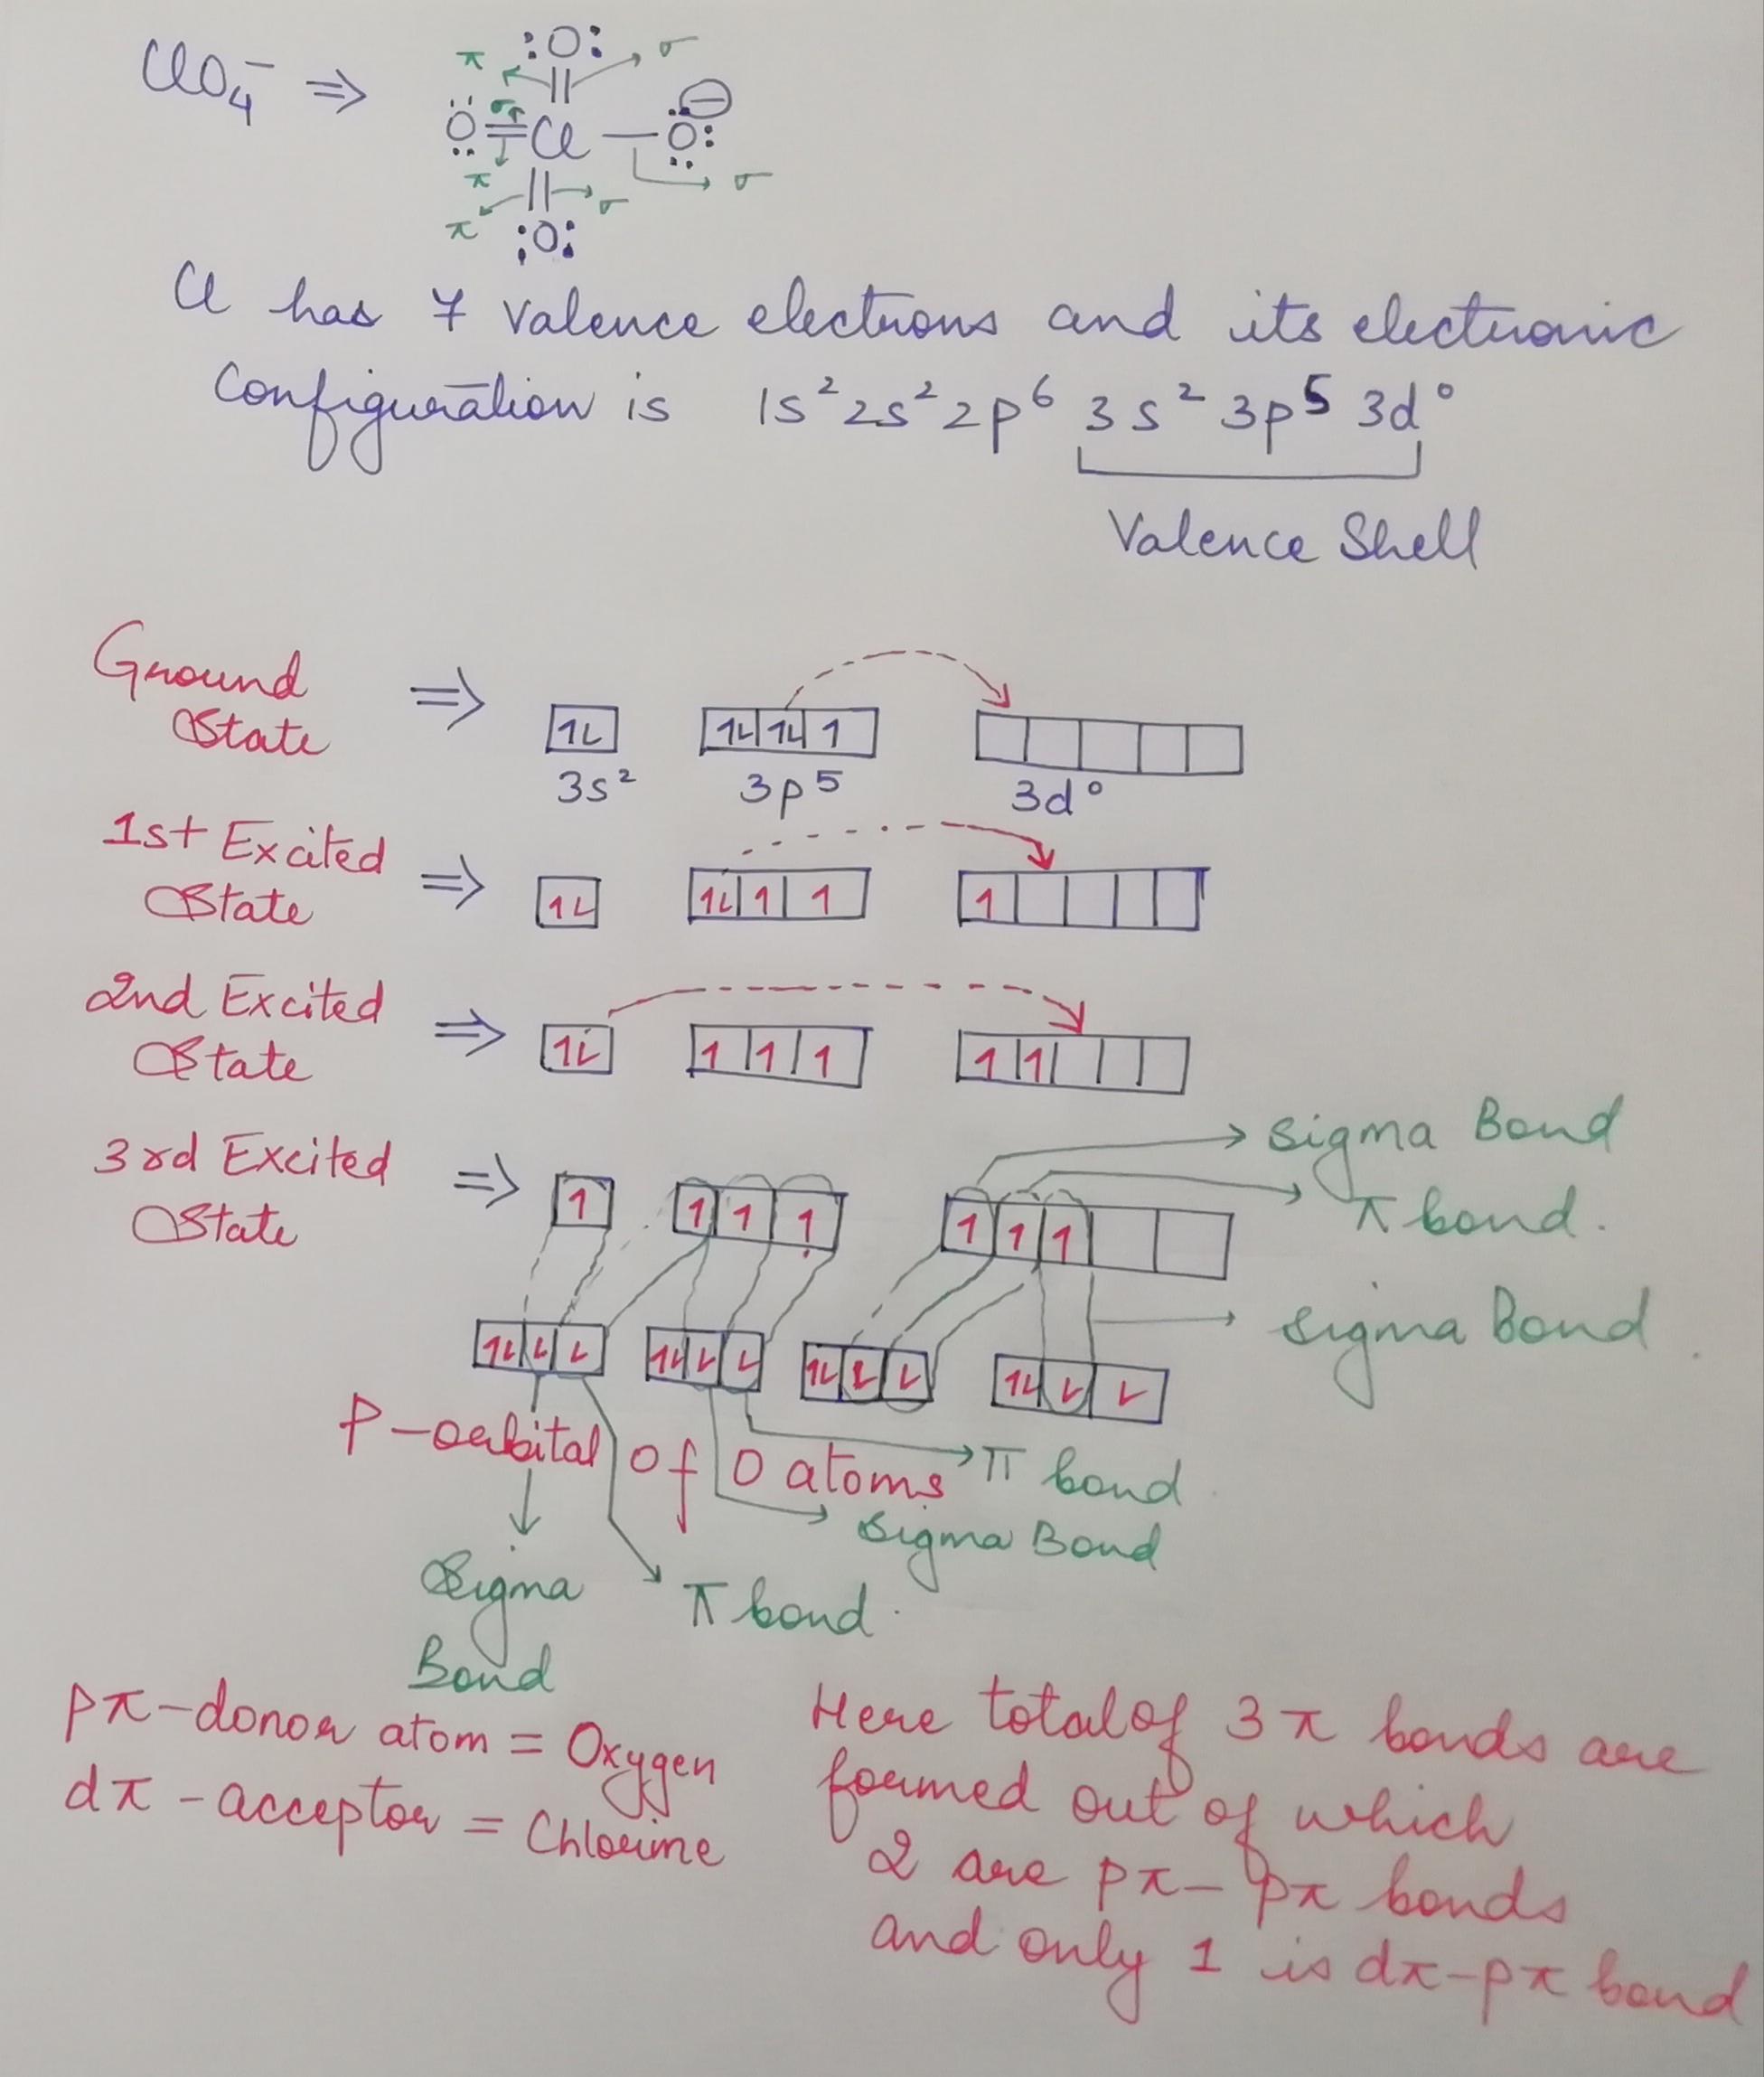 ClO₄⁻ ⇒
:O:
π σ
σ
O = Cl — O: ⊖
π σ
π σ
:O:
Cl has 7 valence electrons and its electronic
configuration is 1s² 2s² 2p⁶ 3s² 3p⁵ 3d⁰
Valence Shell
Ground State ⇒ 1L 1L 1L 1
3s² 3p⁵ 3d⁰
1st Excited State ⇒ 1L 1L 1 1 1
2nd Excited State ⇒ 1L 1 1 1 1 1
3rd Excited State ⇒ 1 1 1 1 1 1 1
Sigma Bond
π bond.
Sigma Bond
1L L L 1L L L 1L L L 1L L L
P-orbital of O atoms
π bond
Sigma Bond
Sigma Bond
π bond.
pπ-donor atom = Oxygen
dπ-acceptor = Chlorine
Here total of 3π bonds are
formed out of which
2 are pπ-pπ bonds
and only 1 is dπ-pπ bond